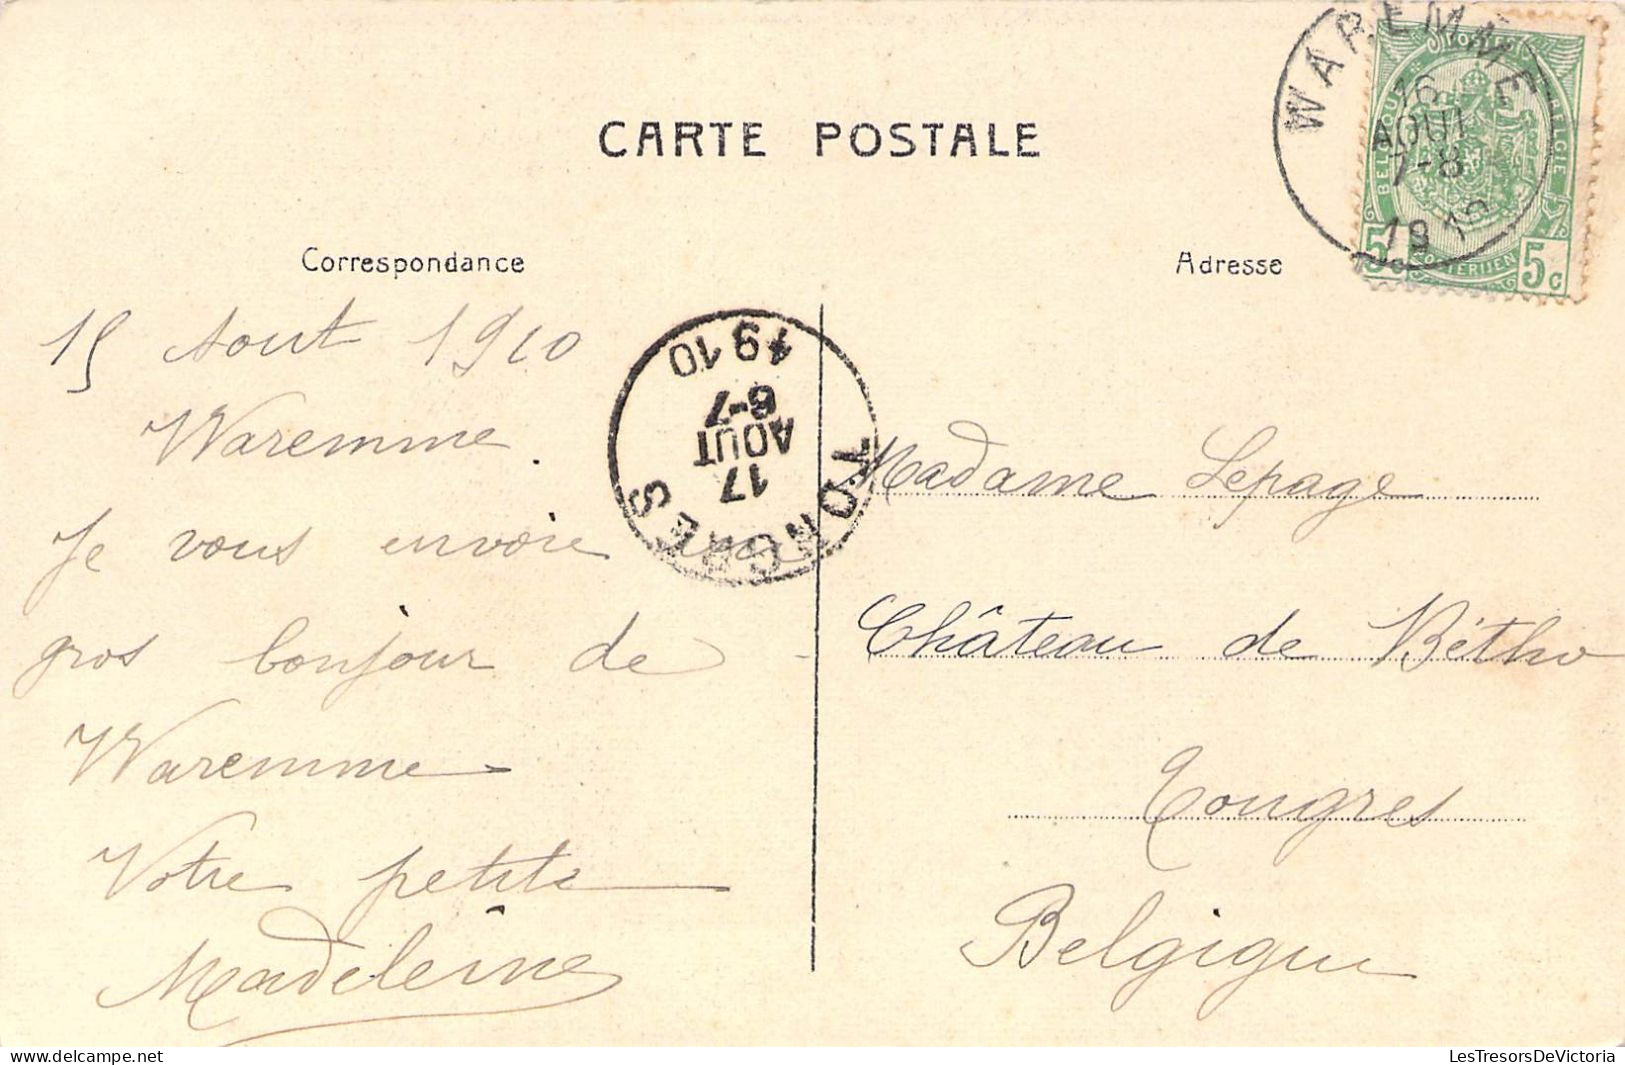 CARTE POSTALE
Correspondance
Adresse
WAREMME
16
AOUT
7-8
1910
POSTES
BELGIQUE
BELGIË
POSTERIJEN
5c 5c
TONGRES
17
AOUT
6-7
1910
15 Aout 1910
Waremme.
Je vous envoie un
gros bonjour de
Waremme
Votre petite
Madeleine
Madame Lepage
Château de Bétho
Tongres
Belgique
delcampe.net
LesTresorsDeVictoria